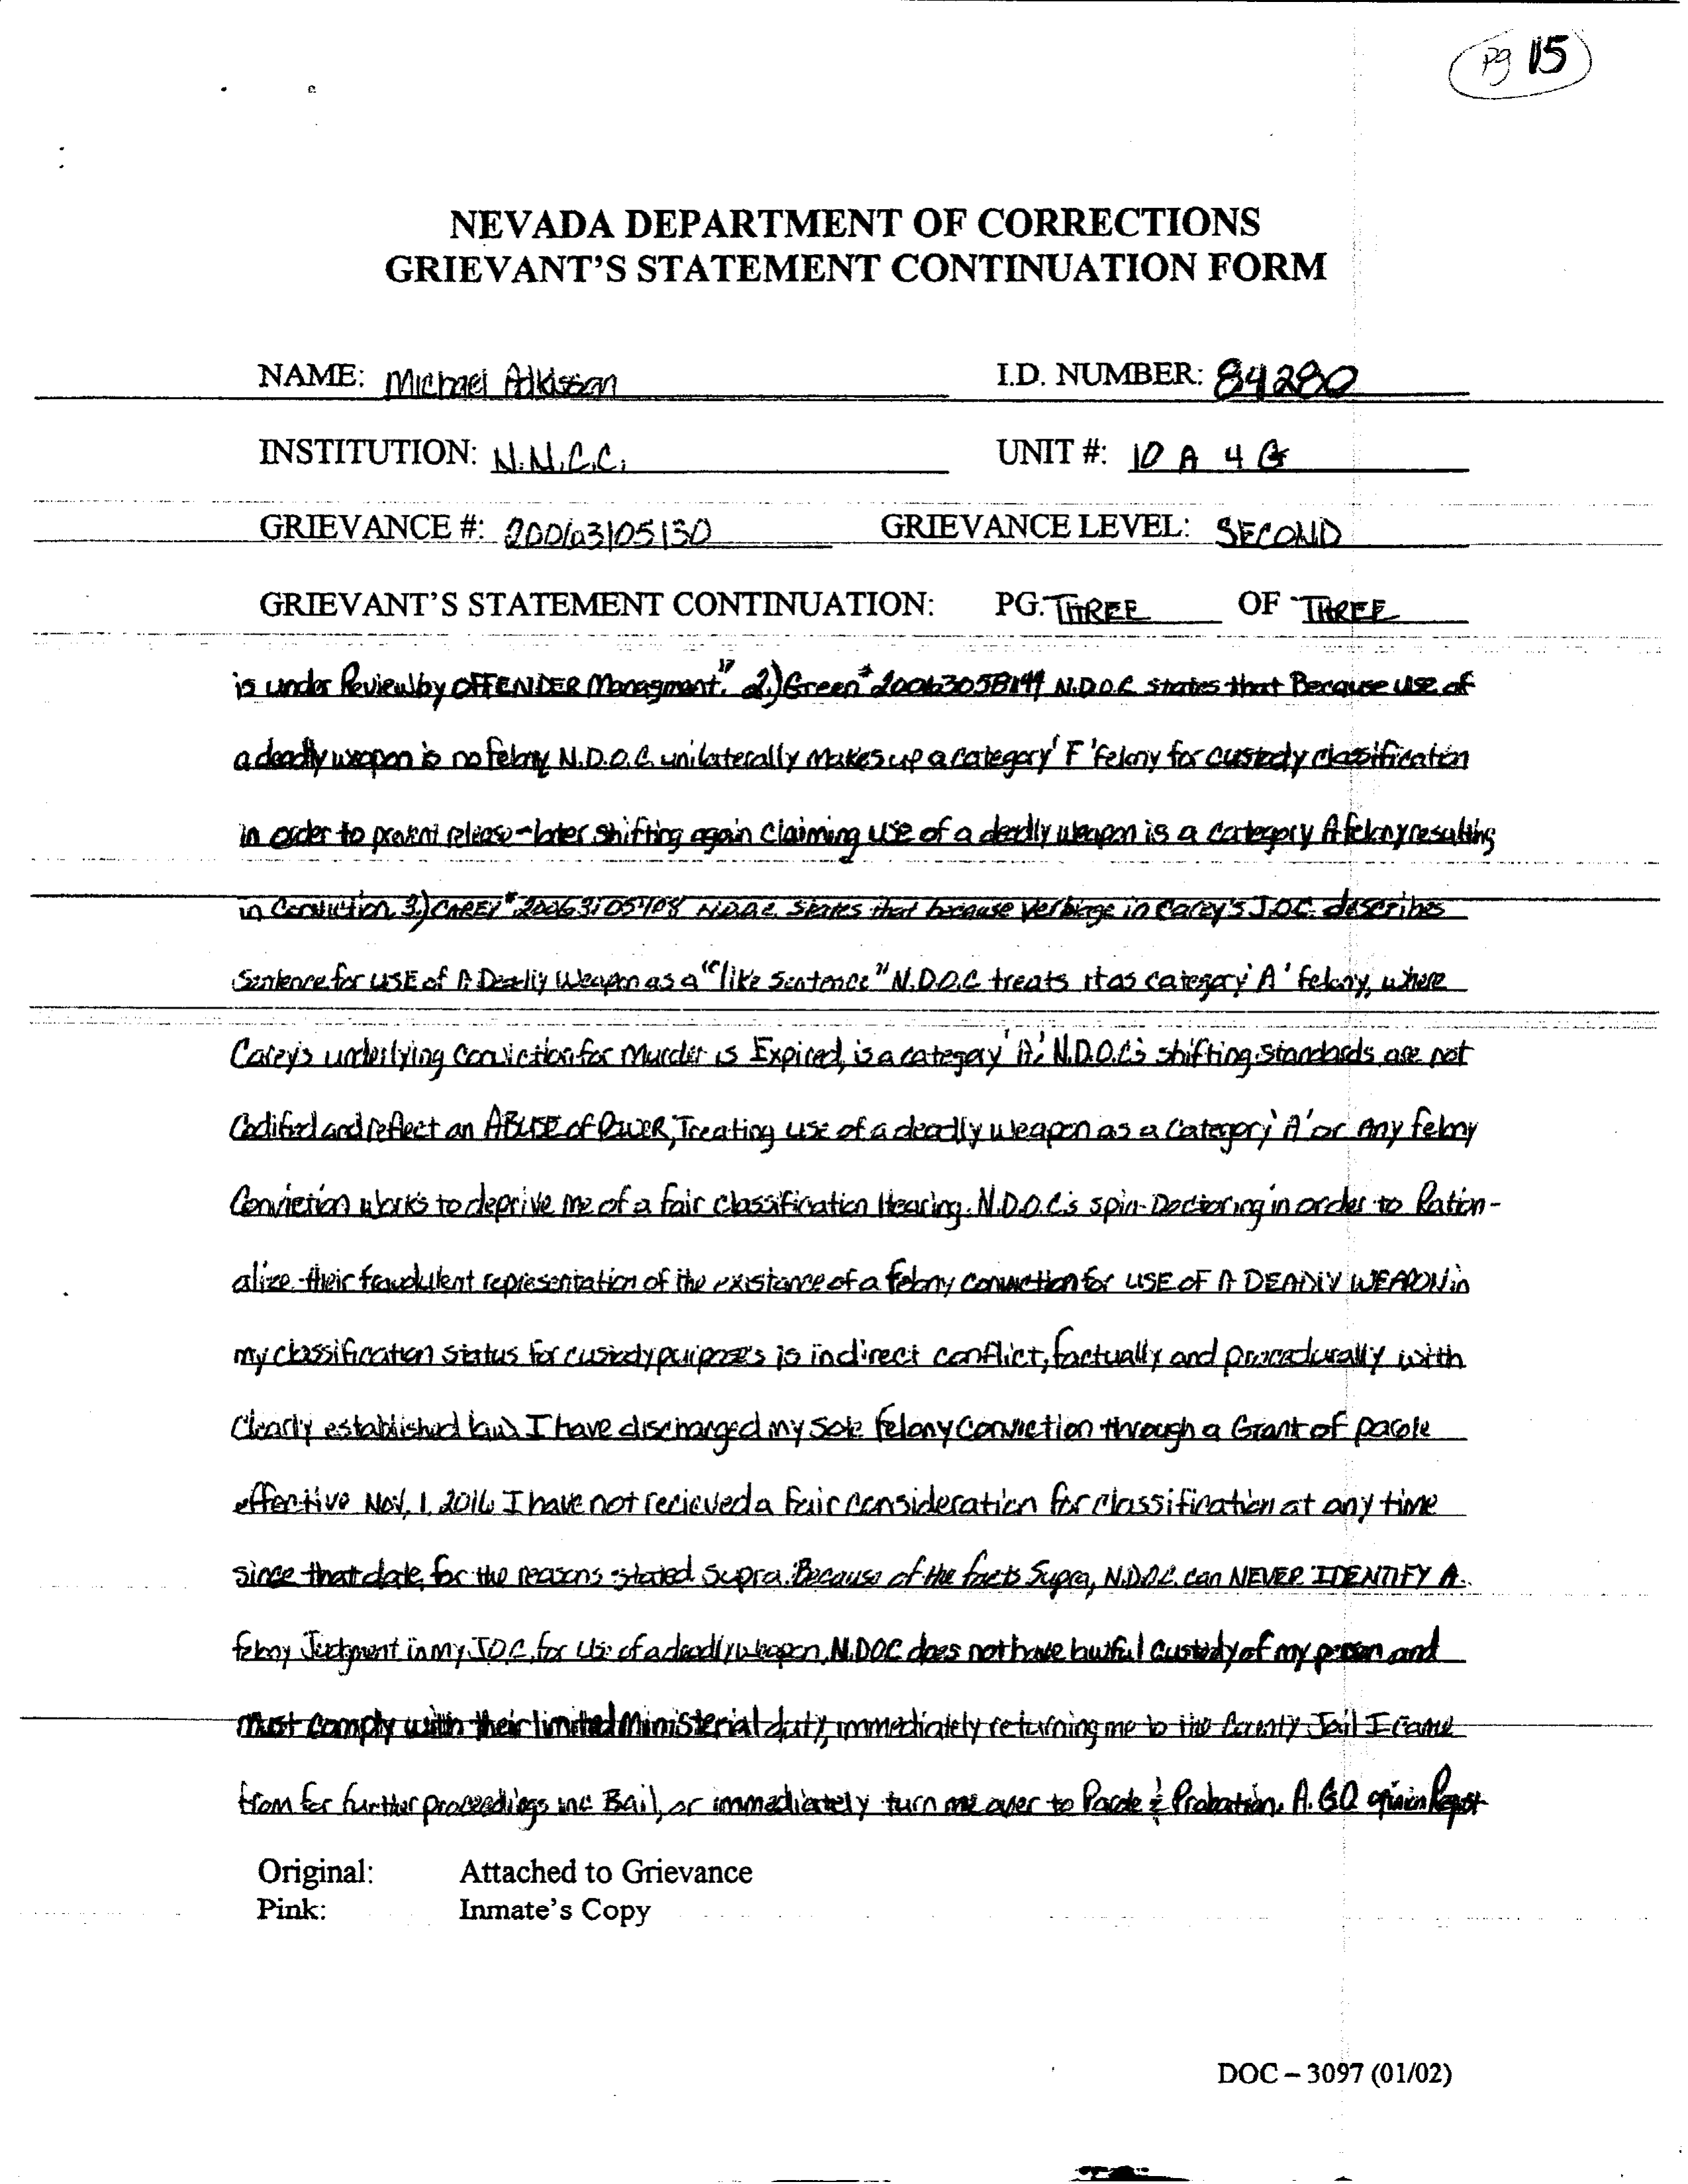 pg 15
NEVADA DEPARTMENT OF CORRECTIONS
GRIEVANT'S STATEMENT CONTINUATION FORM
NAME: Michael Adkisson I.D. NUMBER: 84280
INSTITUTION: N.N.C.C. UNIT #: 10 A 4 G
GRIEVANCE #: 20063105130 GRIEVANCE LEVEL: SECOND
GRIEVANT'S STATEMENT CONTINUATION: PG. THREE OF THREE
is under Review by OFFENDER Managment." 2.) Green # N.D.O.C. states that Because use of
a deadly weapon is no felony N.D.O.C. unilaterally makes up a category 'F' felony for custody classification
in order to prevent release - later shifting again claiming use of a deadly weapon is a category A felony resulting
in Conviction 3.) CAREY # N.D.O.C. states that because verbiage in Carey's J.O.C. describes
Sentence for USE of A Deadly Weapon as a "like sentence" N.D.O.C treats it as category 'A' felony, where
Carey's underlying conviction for Murder is Expired, is a category 'A.' N.D.O.C.'s shifting standards are not
Codified and reflect an ABUSE of POWER, Treating use of a deadly weapon as a Category 'A' or Any felony
Conviction works to deprive me of a fair classification Hearing. N.D.O.C.'s spin-Doctoring in order to Ration-
alize their fraudulent representation of the existance of a felony conviction for USE OF A DEADLY WEAPON in
my classification status for custody purposes is in direct conflict, factually and procedurally with
Clearly established law. I have discharged my sole felony Conviction through a Grant of parole
effective Nov, 1, 2016 I have not recieved a fair consideration for classification at any time
since that date, for the reasons stated supra. Because of the facts Supra, N.D.O.C. can NEVER IDENTIFY A
felony Judgment in my J.O.C. for Use of a deadly weapon. N.DOC does not have lawful custody of my person and
must comply with their limited Ministerial duty, immediately returning me to the County Jail I came
from for further proceedings inc Bail, or immediately turn me over to Parole & Probation. A.G.O opinion
Original: Attached to Grievance
Pink: Inmate's Copy
DOC – 3097 (01/02)